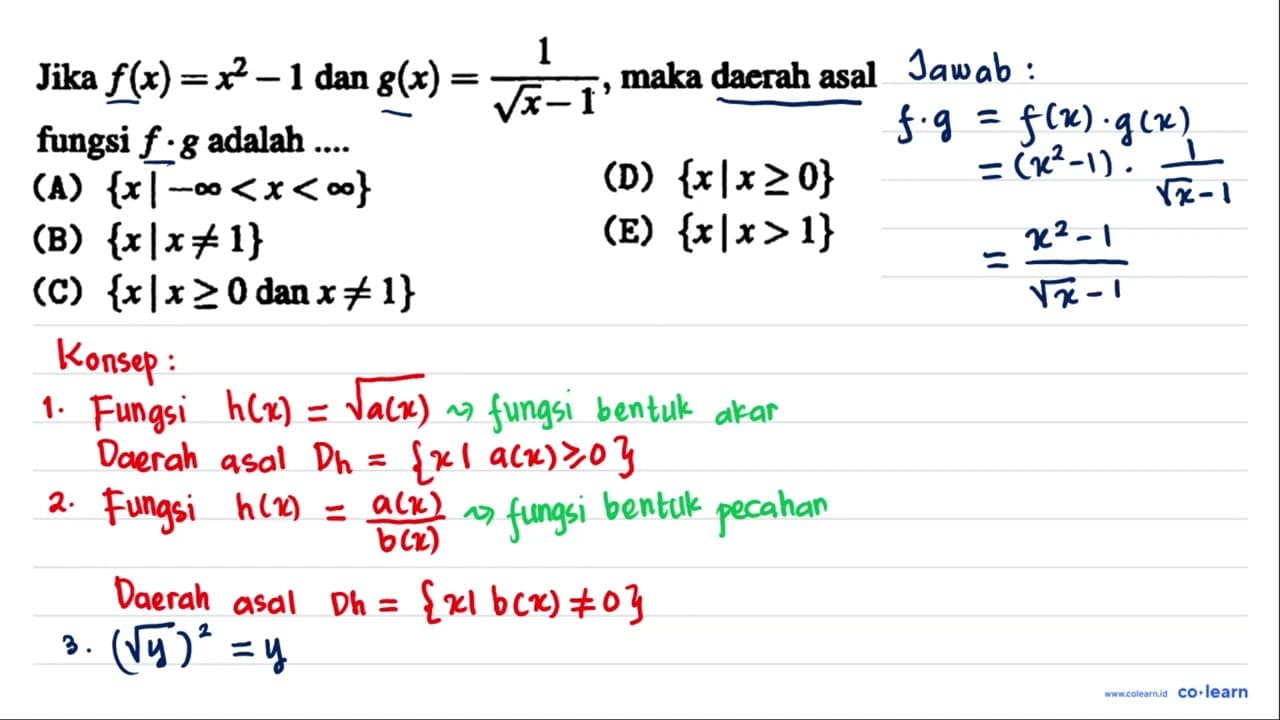 Jika f(x) = x² − 1 dan g(x) = 1/(√x − 1), maka daerah asal
fungsi f · g adalah ....
(A) {x | −∞ < x < ∞}
(B) {x | x ≠ 1}
(C) {x | x ≥ 0 dan x ≠ 1}
(D) {x | x ≥ 0}
(E) {x | x > 1}
Jawab :
f·g = f(x)·g(x)
= (x²−1) · 1/(√x − 1)
= (x²−1)/(√x − 1)
Konsep :
1. Fungsi h(x) = √a(x) ↝ fungsi bentuk akar
Daerah asal Dh = {x | a(x) ≥ 0}
2. Fungsi h(x) = a(x)/b(x) ↝ fungsi bentuk pecahan
Daerah asal Dh = {x | b(x) ≠ 0}
3. (√y)² = y
www.colearn.id co·learn